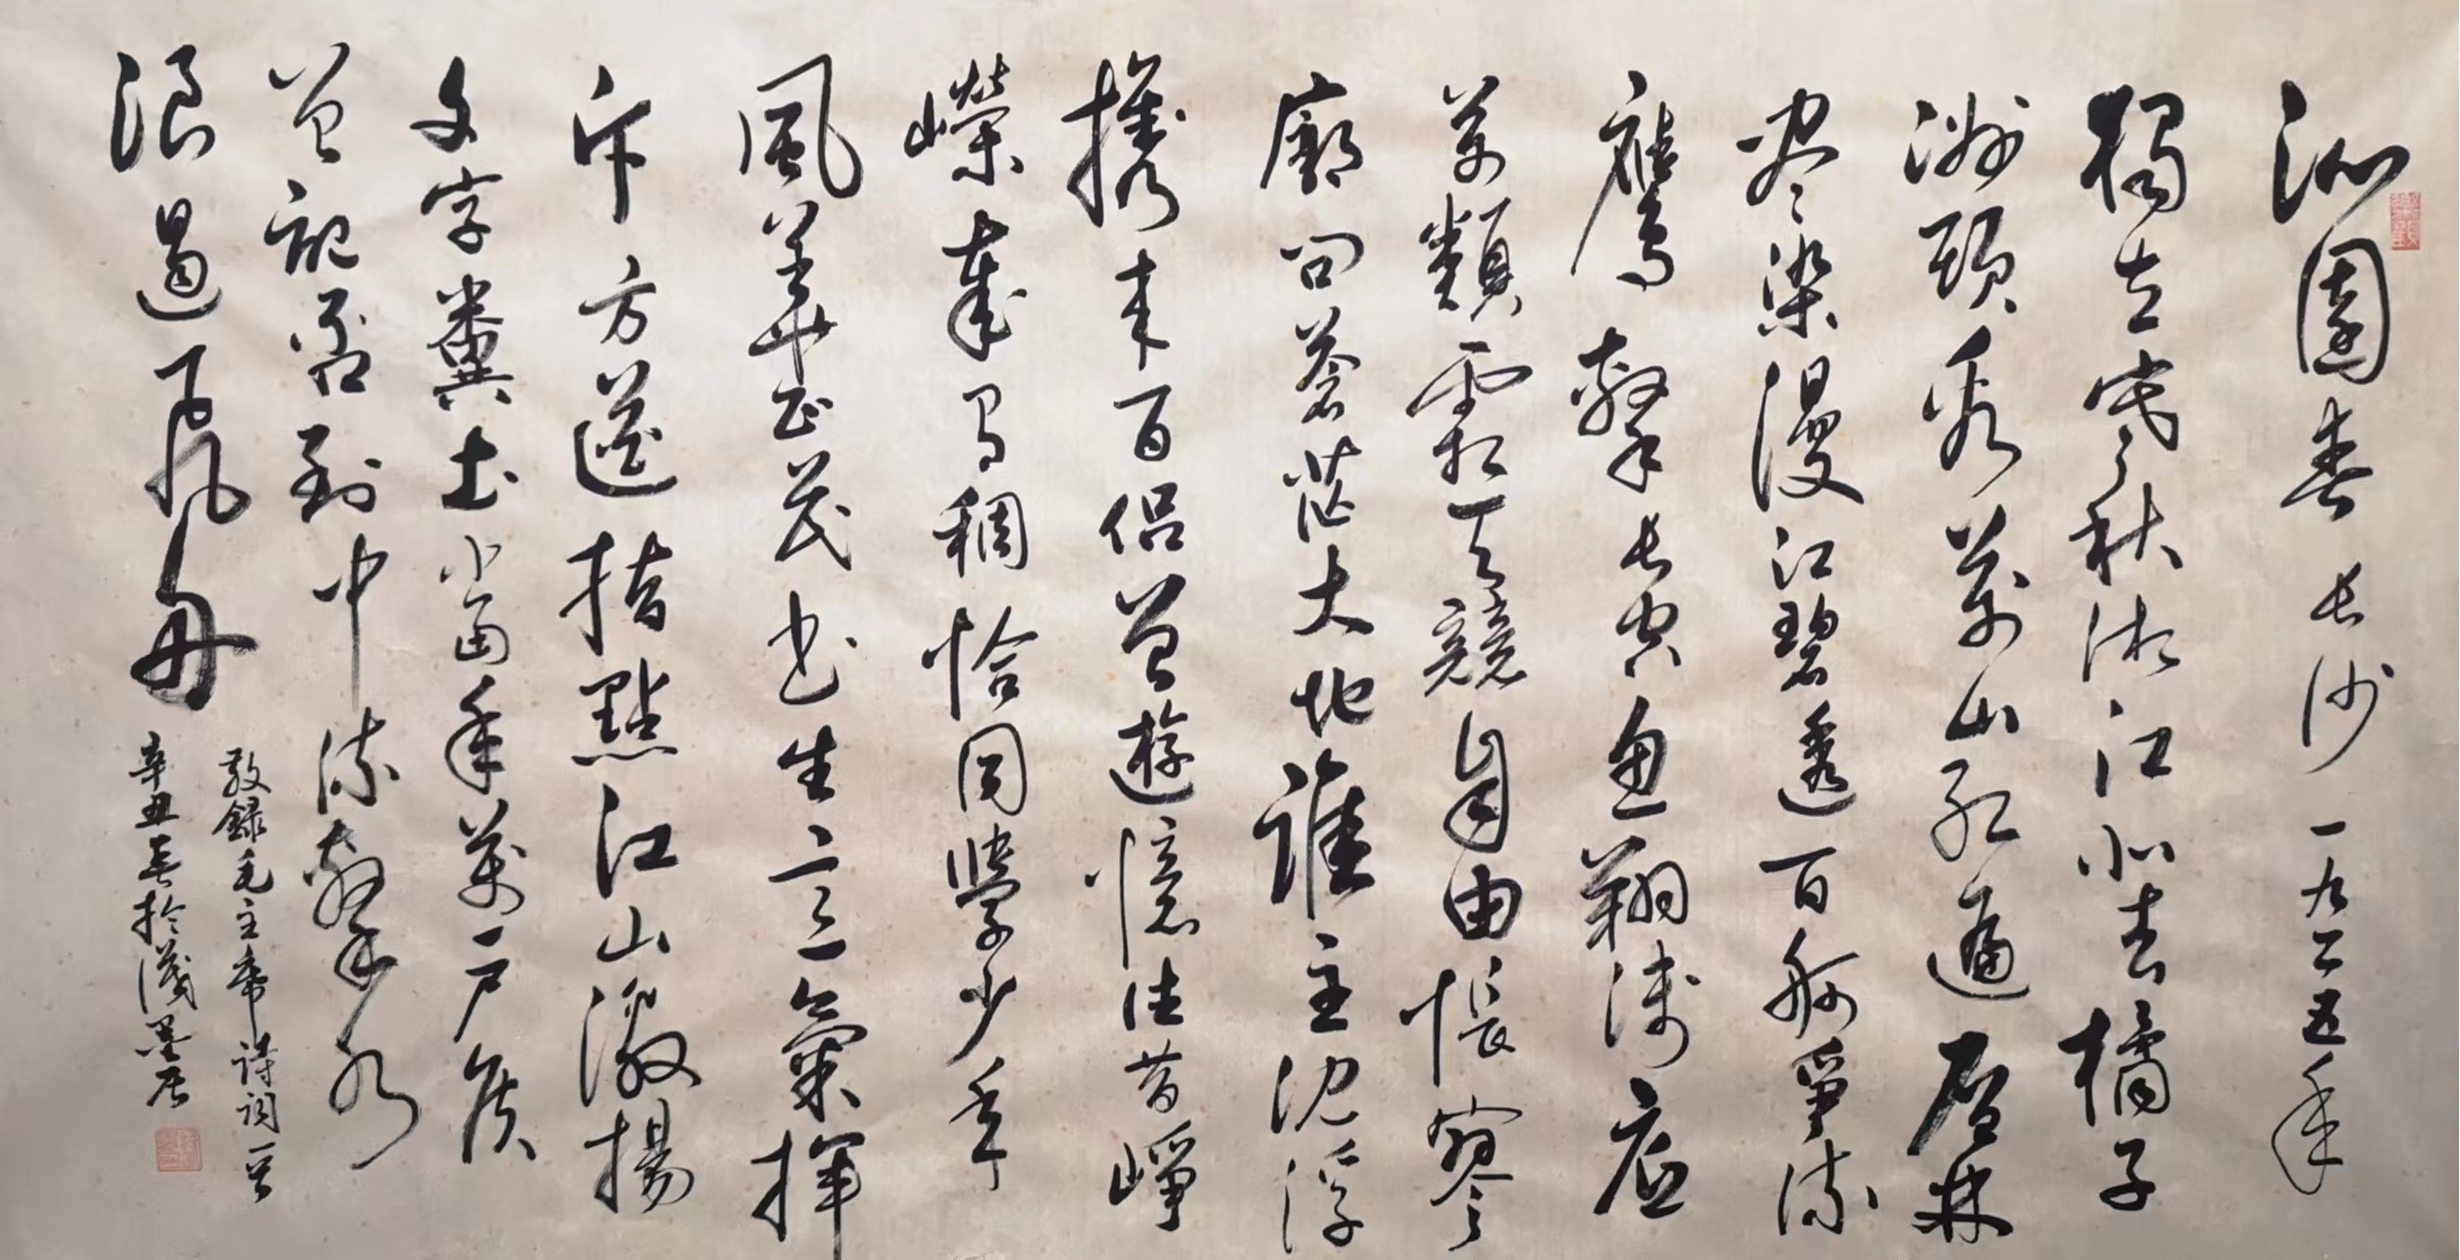 沁園春 長沙 一九二五年
獨立寒秋湘江北去橘子
洲頭看萬山紅遍層林
尽染漫江碧透百舸爭流
鷹擊長空魚翔淺底
萬類霜天競自由悵寥
廓問蒼茫大地誰主沈浮
攜來百侶曾遊憶往昔崢
嶸歲月稠恰同學少年
風華正茂書生意氣揮
斥方遒指點江山激揚
文字糞土當年萬戶侯
曾記否到中流擊水
浪遏飛舟
敬錄毛主席詩詞一首
辛丑春於淺墨居